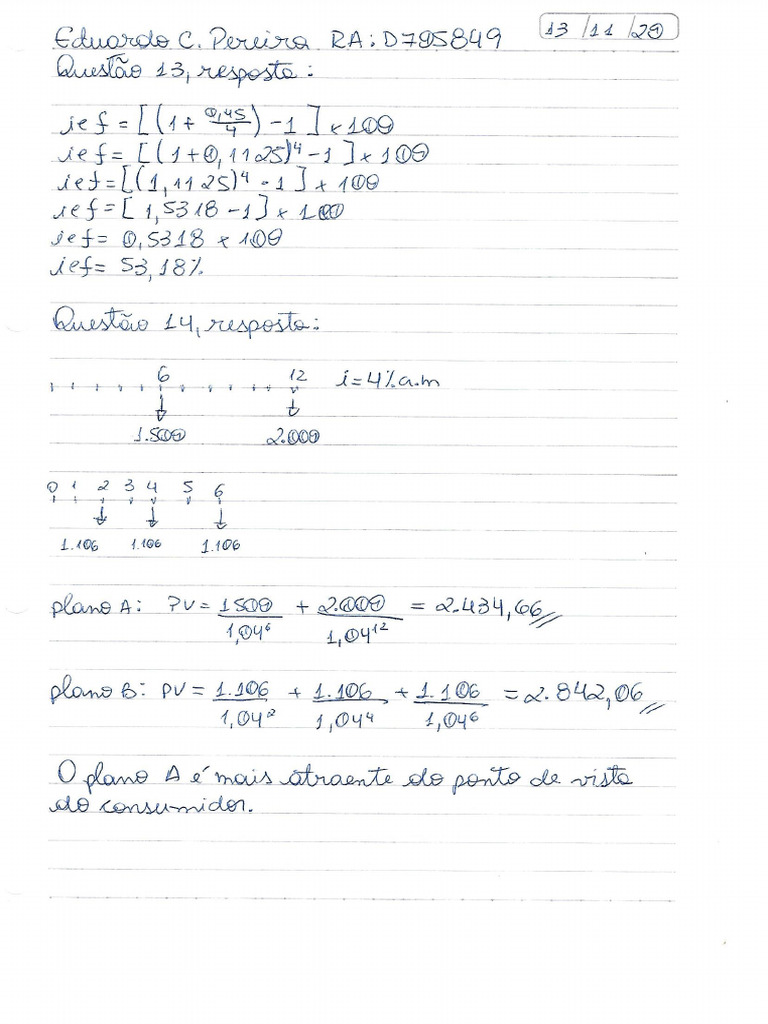 Eduardo C. Pereira RA: D795849 13/11/20
Questão 13, resposta:
ief = [(1 + 0,45/4) - 1] x 100
ief = [(1 + 0,1125)⁴ - 1] x 100
ief = [(1,1125)⁴ - 1] x 100
ief = [1,5318 - 1] x 100
ief = 0,5318 x 100
ief = 53,18%
Questão 14, resposta:
6 12 i = 4% a.m
1.500 2.000
0 1 2 3 4 5 6
1.106 1.106 1.106
plano A: PV = 1500/1,04⁶ + 2.000/1,04¹² = 2.434,66
plano B: PV = 1.106/1,04² + 1.106/1,04⁴ + 1.106/1,04⁶ = 2.842,06
O plano A é mais atraente do ponto de vista
do consumidor.